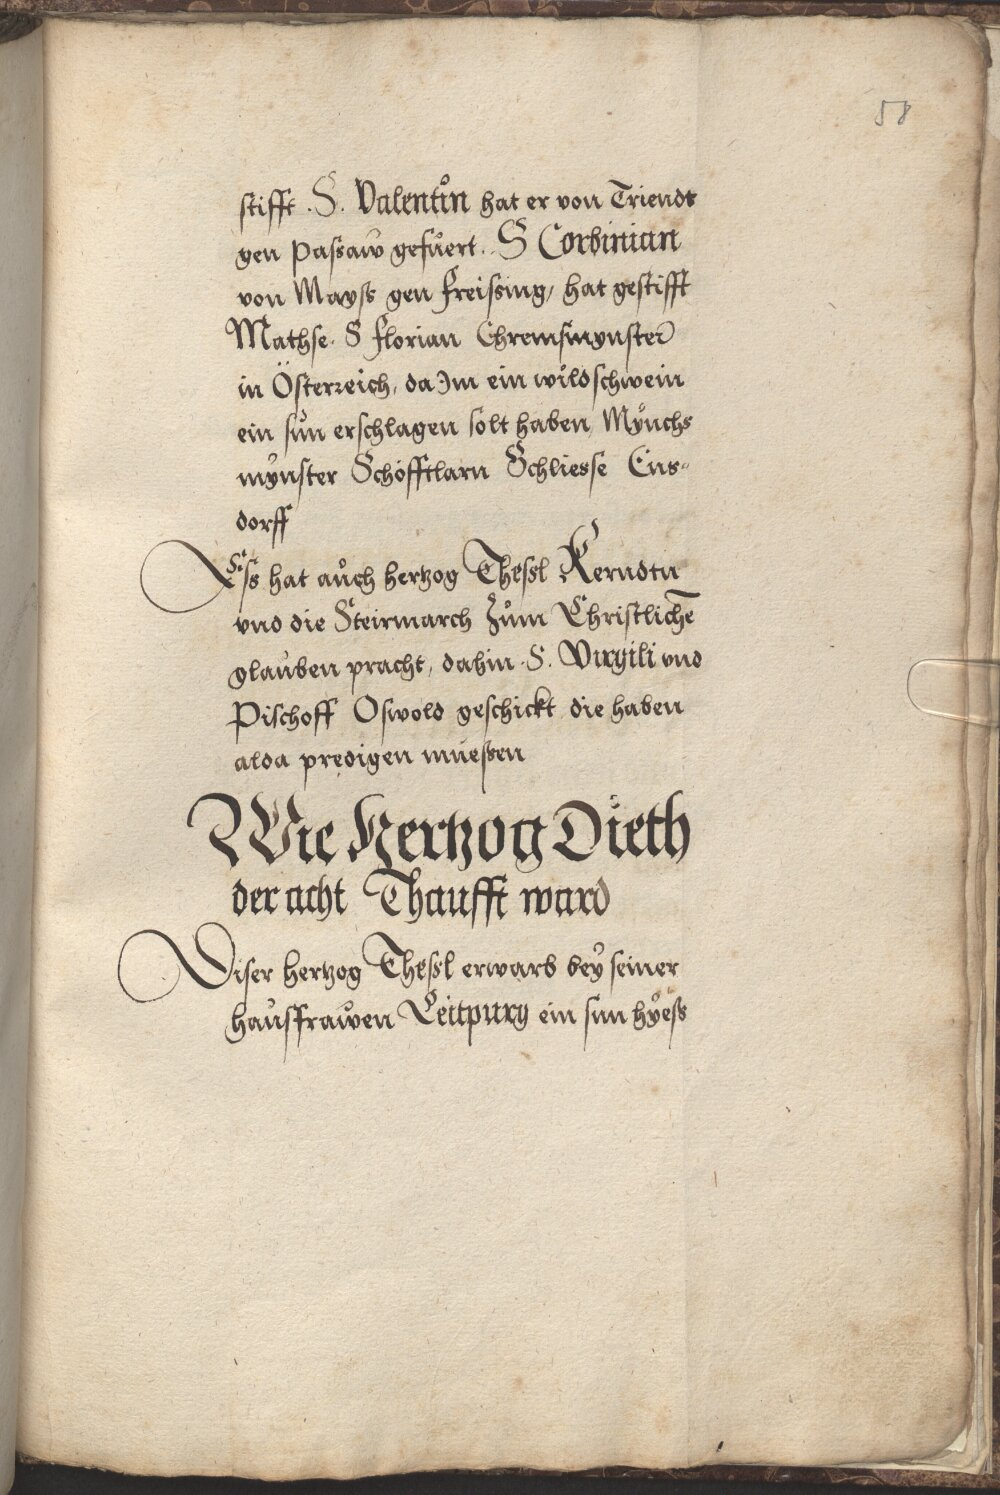 58
stifft . S. Valentin hat er von Triendt
gen Passaw gefuert. S Corbinian
von Mayss gen Freissing, hat gestifft
Mathse. S Florian Chremsmynster
in Österreich, da Im ein wildschwein
ein sun erschlagen solt haben, Mynchs
mynster Schöfftlarn Schliesse Ens-
dorff
Ess hat auch hertzog Thessl Kerndtn
vnd die Steirmarch Zum Christlichen
glauben pracht, dahin S. Virgili vnd
Pischoff Oswold geschickt die haben
alda predigen muessen
Wie Hertzog Dieth
der acht Thaufft ward
Diser hertzog Thessl erwarb bey seiner
hausfrawen Leitpurg ein sun hyess